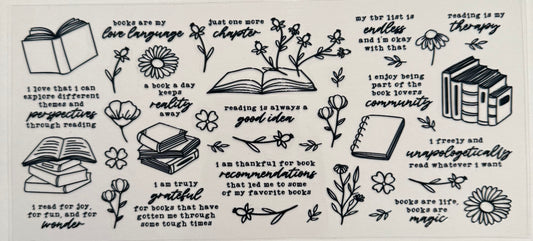 books are my
love language
just one more
chapter
my tbr list is
endless
and i'm okay
with that
reading is my
therapy
i love that i can
explore different
themes and
perspectives
through reading
a book a day
keeps
reality
away
reading is always a
good idea
i enjoy being
part of the
book lovers
community
i am thankful for book
recommendations
that led me to some
of my favorite books
i freely and
unapologetically
read whatever i want
i read for joy,
for fun, and for
wonder
i am truly
grateful
for books that have
gotten me through
some tough times
books are life,
books are
magic